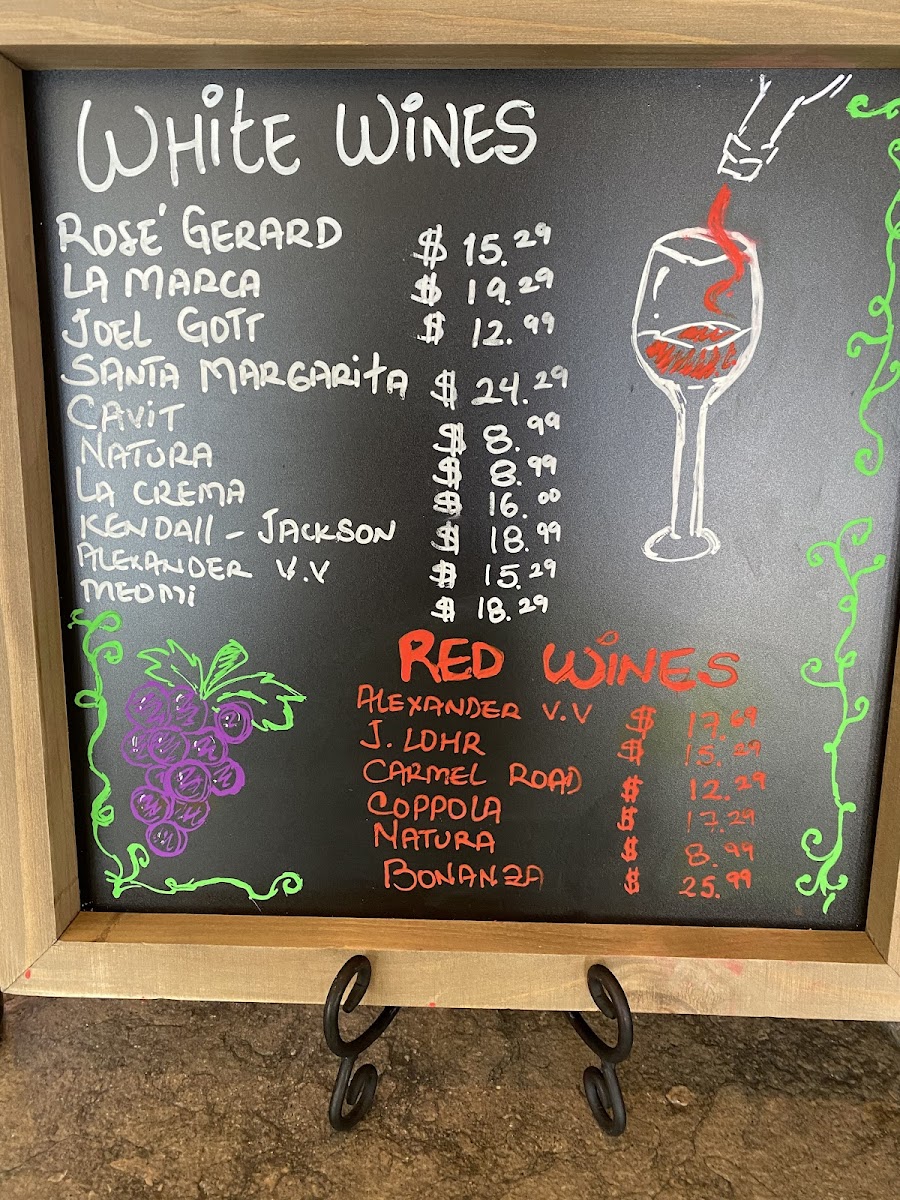 WHitE WiNES
ROSÉ GERARD $ 15.29
LA MARCA $ 19.29
JOEL GOTT $ 12.99
SANTA MARGARitA $ 24.29
CAViT $ 8.99
NATURA $ 8.99
LA CREMA $ 16.00
KENDAll - JACKSON $ 18.99
ALEXANDER V.V $ 15.29
MEOMi $ 18.29
RED WiNES
ALEXANDER V.V $ 17.69
J. LOHR $ 15.29
CARMEL ROAD $ 12.29
COPPOLA $ 17.29
NATURA $ 8.99
BONANZA $ 25.99